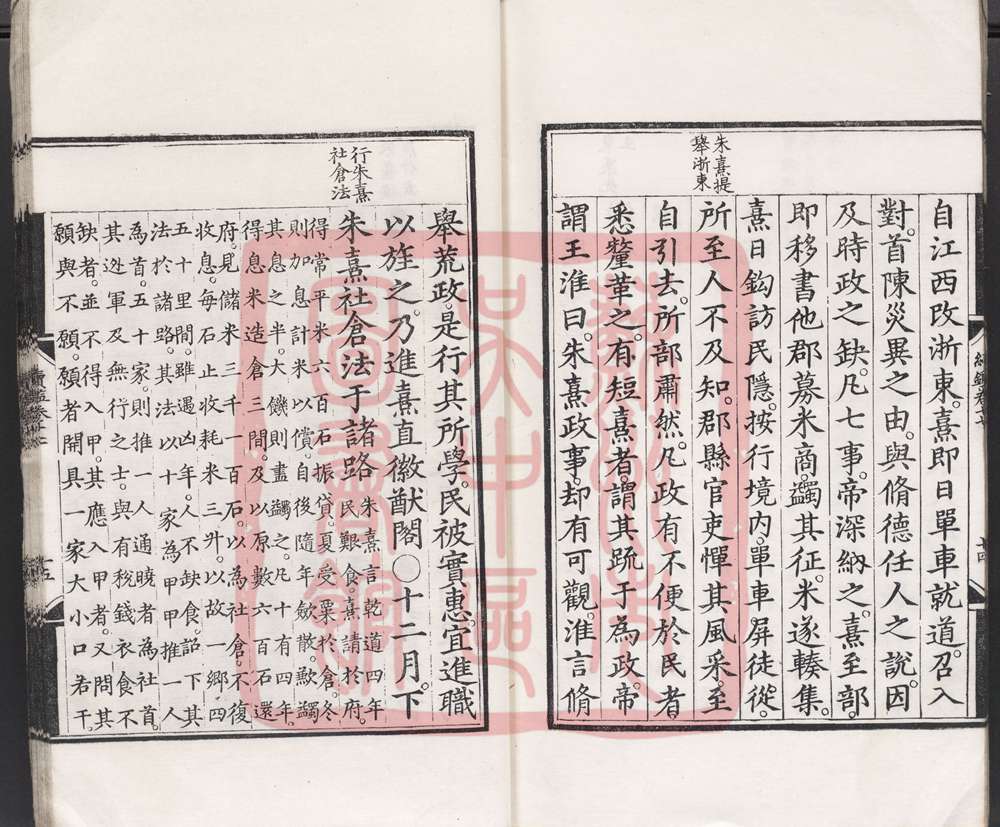 朱熹提
舉浙東
自江西改浙東。熹即日單車就道。召入
對。首陳災異之由。與脩德任人之說。因
及時政之缺。凡七事。帝深納之。熹至部。
即移書他郡。募米商。蠲其征。米遂輳集。
熹日鈎訪民隱。按行境內。單車屏徒從。
所至人不及知。郡縣官吏憚其風采。至
自引去。所部肅然。凡政有不便於民者。
悉釐革之。有短熹者。謂其疏于為政。帝
謂王淮曰。朱熹政事。却有可觀。淮言脩
十四
行朱熹
社倉法
舉荒政。是行其所學。民被實惠。宜進職
以旌之。乃進熹直徽猷閣〇十二月。下
朱熹社倉法于諸路
朱熹言乾道四年
民艱食。熹請於府。
得常平米六百石振貸。夏受粟於倉。冬
則加息計米以償。自後隨年斂散。歉蠲
其息之半。大饑則盡蠲之。凡十有四年。
得息米造倉三間。及以原數六百石還
府。見儲米三千一百石。以為社倉。不復
收息。每石止收耗米三升。以故一鄉四
五十里間。雖遇凶年。人不缺食。詔下其
法於諸路。其法以十家為甲。甲推一人
為首。五十家。則推一人通曉者為社首。
其逃軍及無行之士。與有稅錢衣食不
缺者。並不得入甲。其應入甲者。又問其
願與不願。願者開具一家大小口若干
十五
吳中區
圖書館